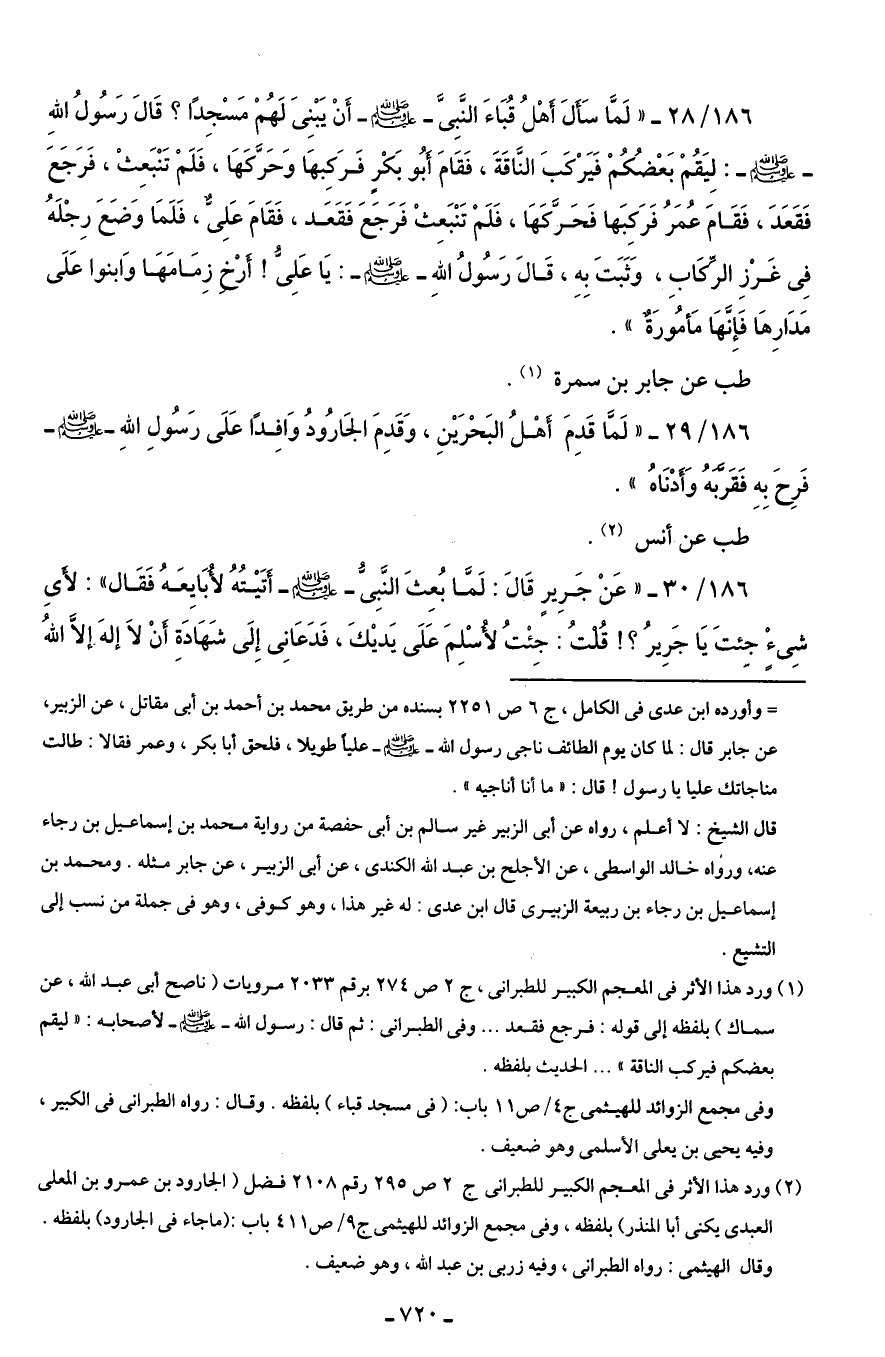 ٢٨/١٨٦ ـ « لَمَّا سَأَلَ أَهْلُ قُبَاءَ النَّبِىَّ ـ ﷺ ـ أَنْ يَبْنِىَ لَهُمْ مَسْجِدًا ؟ قَالَ رَسُولُ اللهِ
ـ ﷺ ـ : لِيَقُمْ بَعْضُكُمْ فَيَرْكَبَ النَّاقَةَ ، فَقَامَ أَبُو بَكْرٍ فَرَكِبهَا وَحَرَّكَهَا ، فَلَمْ تَنْبَعِثْ ، فَرَجَعَ
فَقَعَدَ ، فَقَامَ عُمَرُ فَرَكبَهَا فَحَرَّكَهَا ، فَلَمْ تَنْبَعِثْ فَرَجَعَ فَقَعَد ، فَقَامَ عَلِىٌّ ، فَلَمَا وَضَعَ رِجْلَهُ
فِى غَرْزِ الرِّكَابِ ، وَثَبَتَ بِهِ ، قَالَ رَسُولُ اللهِ ـ ﷺ ـ : يَا عَلِىُّ ! أَرْخِ زِمَامَهَا وَابنوا عَلَى
مَدَارِهَا فَإِنَّهَا مَأمُورَةٌ » .
طب عن جابر بن سمرة (١) .
٢٩/١٨٦ ـ « لَمَّا قَدِمَ أَهْلُ البَحْرَيْنِ ، وَقَدِمَ الجَارُودُ وَافِدًا عَلَى رَسُولِ اللهِ ـ ﷺ ـ
فَرِحَ بِهِ فَقَرَّبَهُ وَأَدْنَاهُ » .
طب عن أنس (٢) .
٣٠/١٨٦ ـ « عَنْ جَرِيرٍ قَالَ : لَمَّا بُعِثَ النَّبِىُّ ـ ﷺ ـ أَتَيْتُهُ لأُبَايِعَهُ فَقَال» : لأَىِ
شِىءٍ جِئتَ يَا جَرِيرُ ؟! قُلْتُ : جِئْتُ لأُسْلِمَ عَلَى يَدَيْكَ ، فَدَعَانِى إِلَى شَهَادَةِ أَنْ لاَ إلهَ إلاَّ اللهُ
= وأورده ابن عدى فى الكامل ، ج ٦ ص ٢٢٥١ بسنده من طريق محمد بن أحمد بن أبى مقاتل ، عن الزبير،
عن جابر قال : لما كان يوم الطائف ناجى رسول الله ـ ﷺ ـ علياً طويلا ، فلحق أبا بكر ، وعمر فقالا : طالت
مناجاتك عليا يا رسول ! قال : « ما أنا أناجيه » .
قال الشيخ : لا أعلم ، رواه عن أبى الزبير غير سالم بن أبى حفصة من رواية محمد بن إسماعيل بن رجاء
عنه، ورواه خالد الواسطى ، عن الأجلح بن عبد الله الكندى ، عن أبى الزبير ، عن جابر مثله . ومحمد بن
إسماعيل بن رجاء بن ربيعة الزبيرى قال ابن عدى : له غير هذا ، وهو كوفى ، وهو فى جملة من نسب إلى
التشيع .
(١) ورد هذا الأثر فى المعجم الكبير للطبرانى ، ج ٢ ص ٢٧٤ برقم ٢٠٣٣ مرويات ( ناصح أبى عبد الله ، عن
سماك ) بلفظه إلى قوله : فرجع فقعد ... وفى الطبرانى : ثم قال : رسول الله ـ ﷺ ـ لأصحابه : « ليقم
بعضكم فيركب الناقة » ... الحديث بلفظه .
وفى مجمع الزوائد للهيثمى ج٤/ ص١١ باب: ( فى مسجد قباء ) بلفظه . وقال : رواه الطبرانى فى الكبير ،
وفيه يحيى بن يعلى الأسلمى وهو ضعيف .
(٢) ورد هذا الأثر فى المعجم الكبير للطبرانى ج ٢ ص ٢٩٥ رقم ٢١٠٨ فضل ( الجارود بن عمرو بن المعلى
العبدى يكنى أبا المنذر) بلفظه ، وفى مجمع الزوائد للهيثمى ج٩/ ص٤١١ باب :(ماجاء فى الجارود) بلفظه .
وقال الهيثمى : رواه الطبرانى ، وفيه زربى بن عبد الله ، وهو ضعيف .
ـ ٧٢٠ ـ